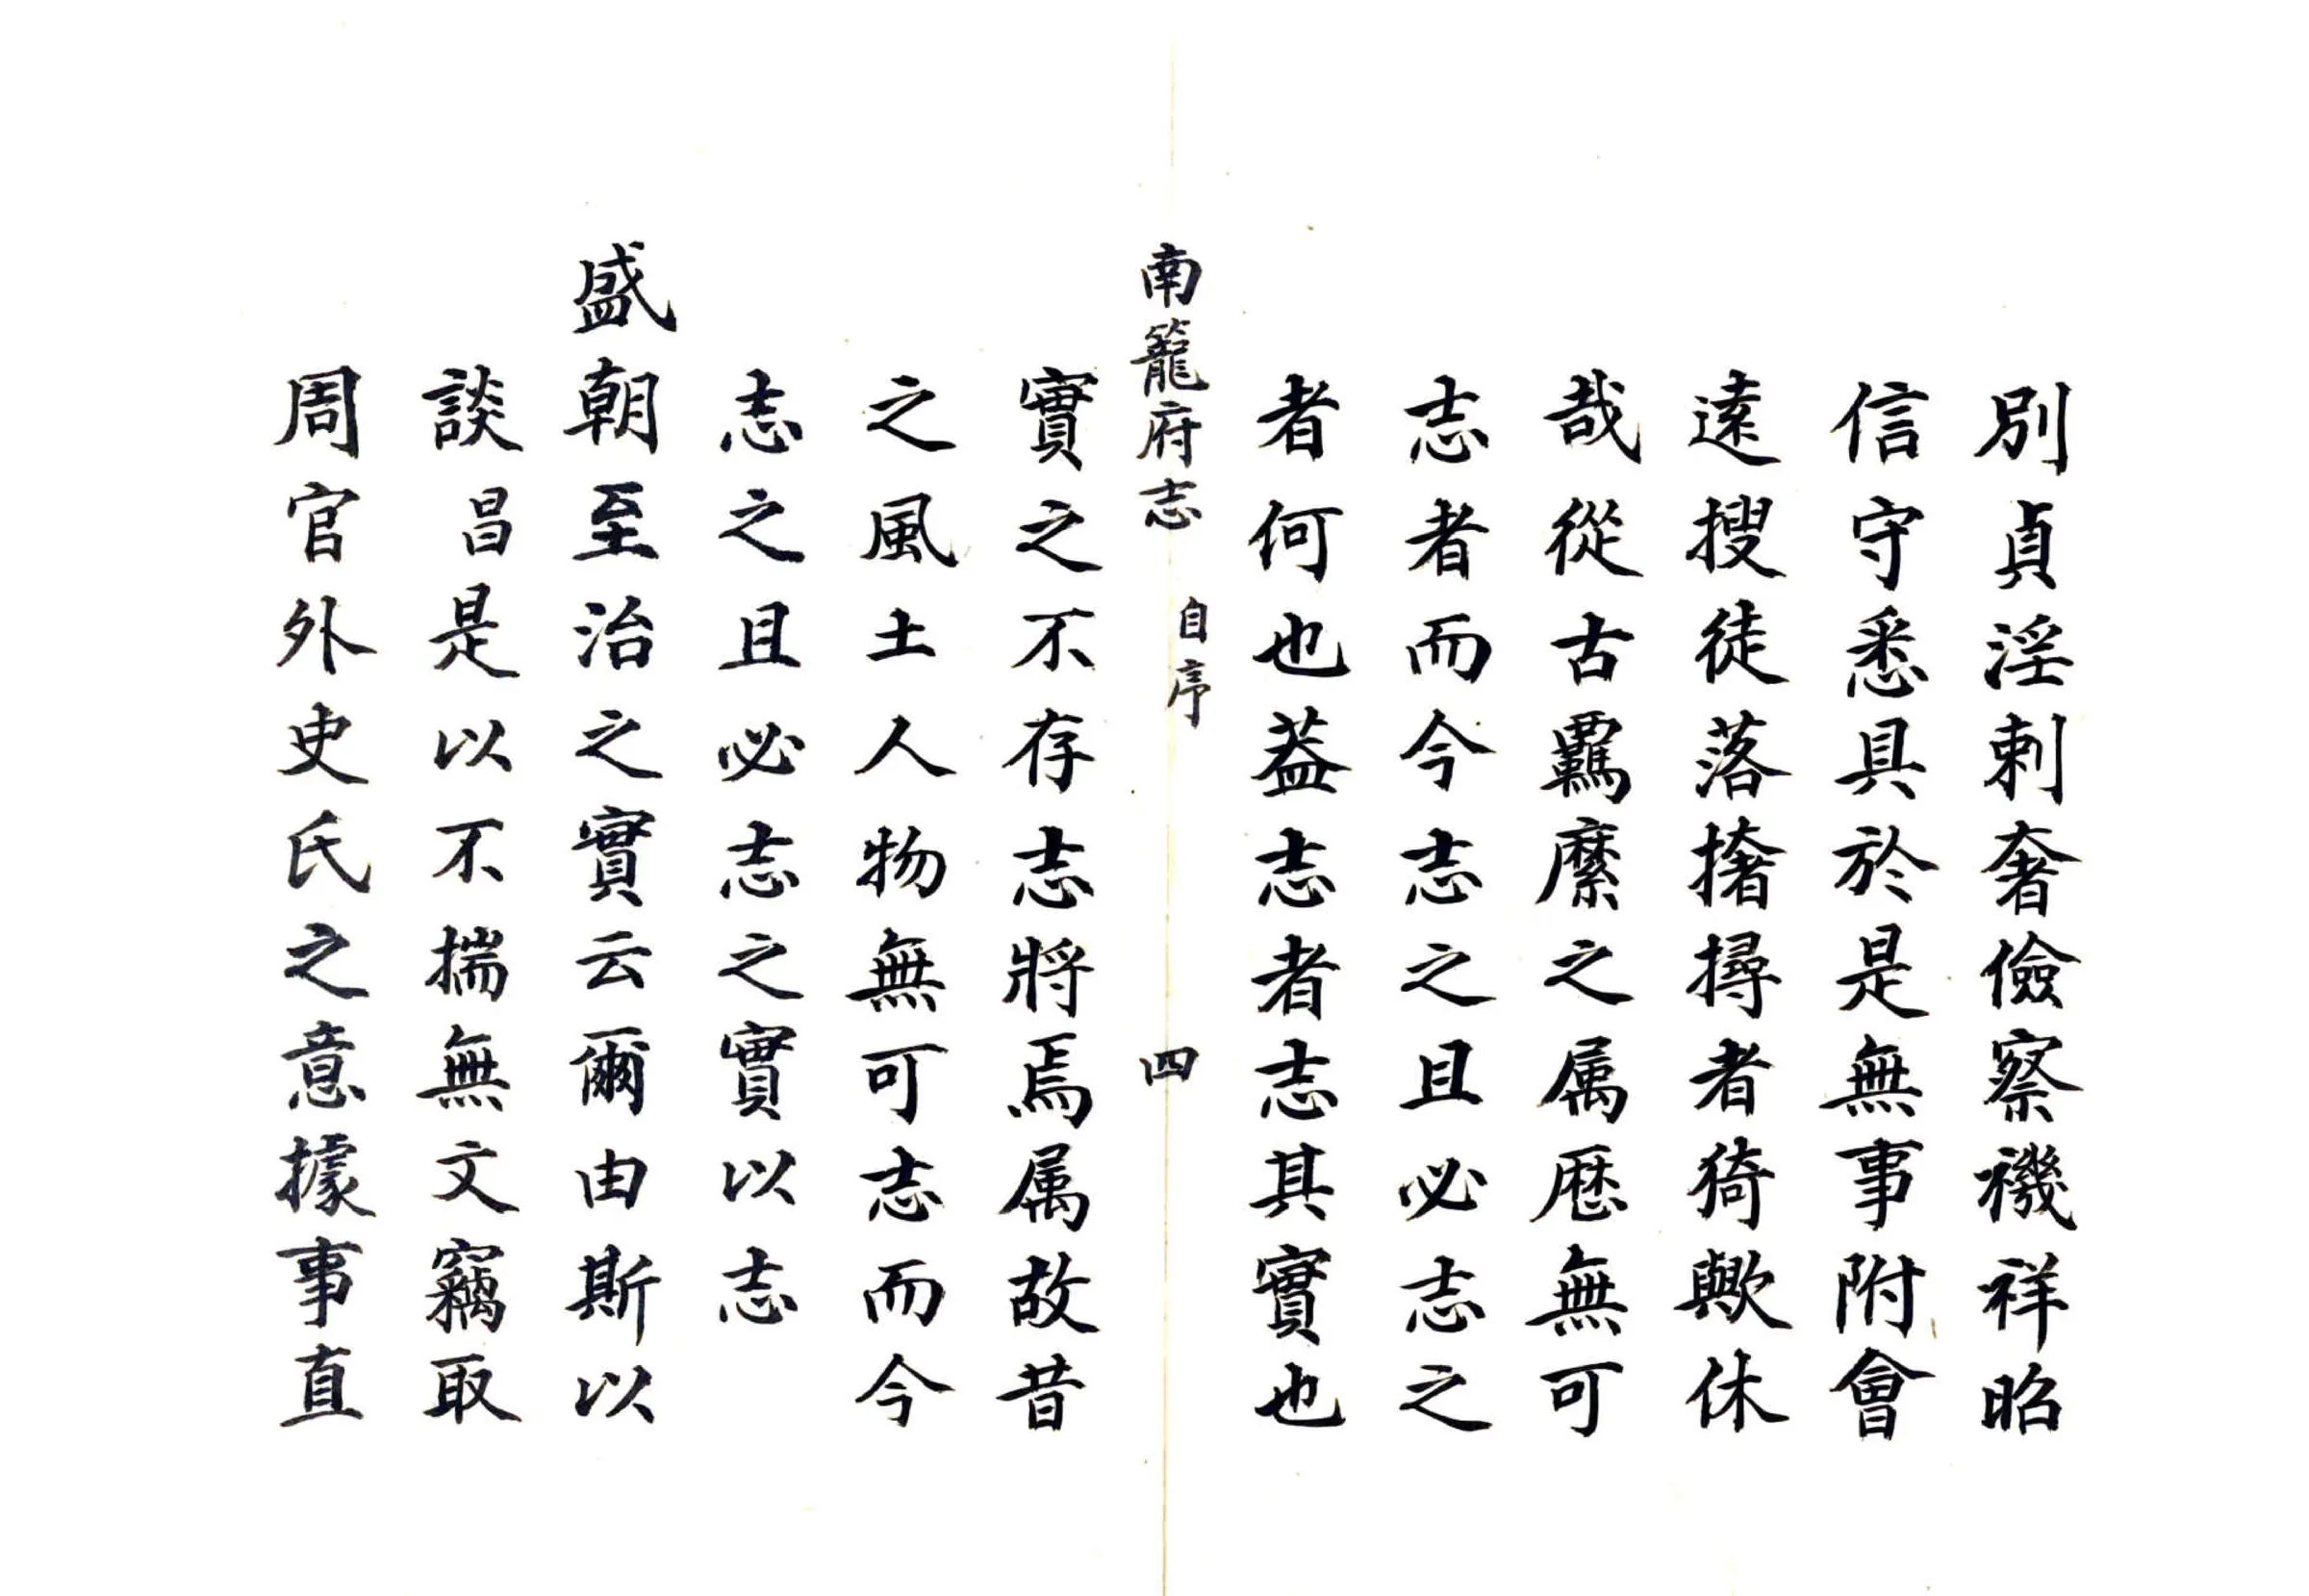 別貞淫剌奢儉察禨祥昭
信守悉具於是無事附會
遠搜徒落撦撏者猗歟休
哉從古羈縻之属厯無可
志者而今志之且必志之
者何也葢志者志其實也
南籠府志 自序 四
實之不存志將焉属故昔
之風土人物無可志而今
志之且必志之實以志
盛朝至治之實云爾由斯以
談昌是以不揣無文竊取
周官外史氏之意據事直